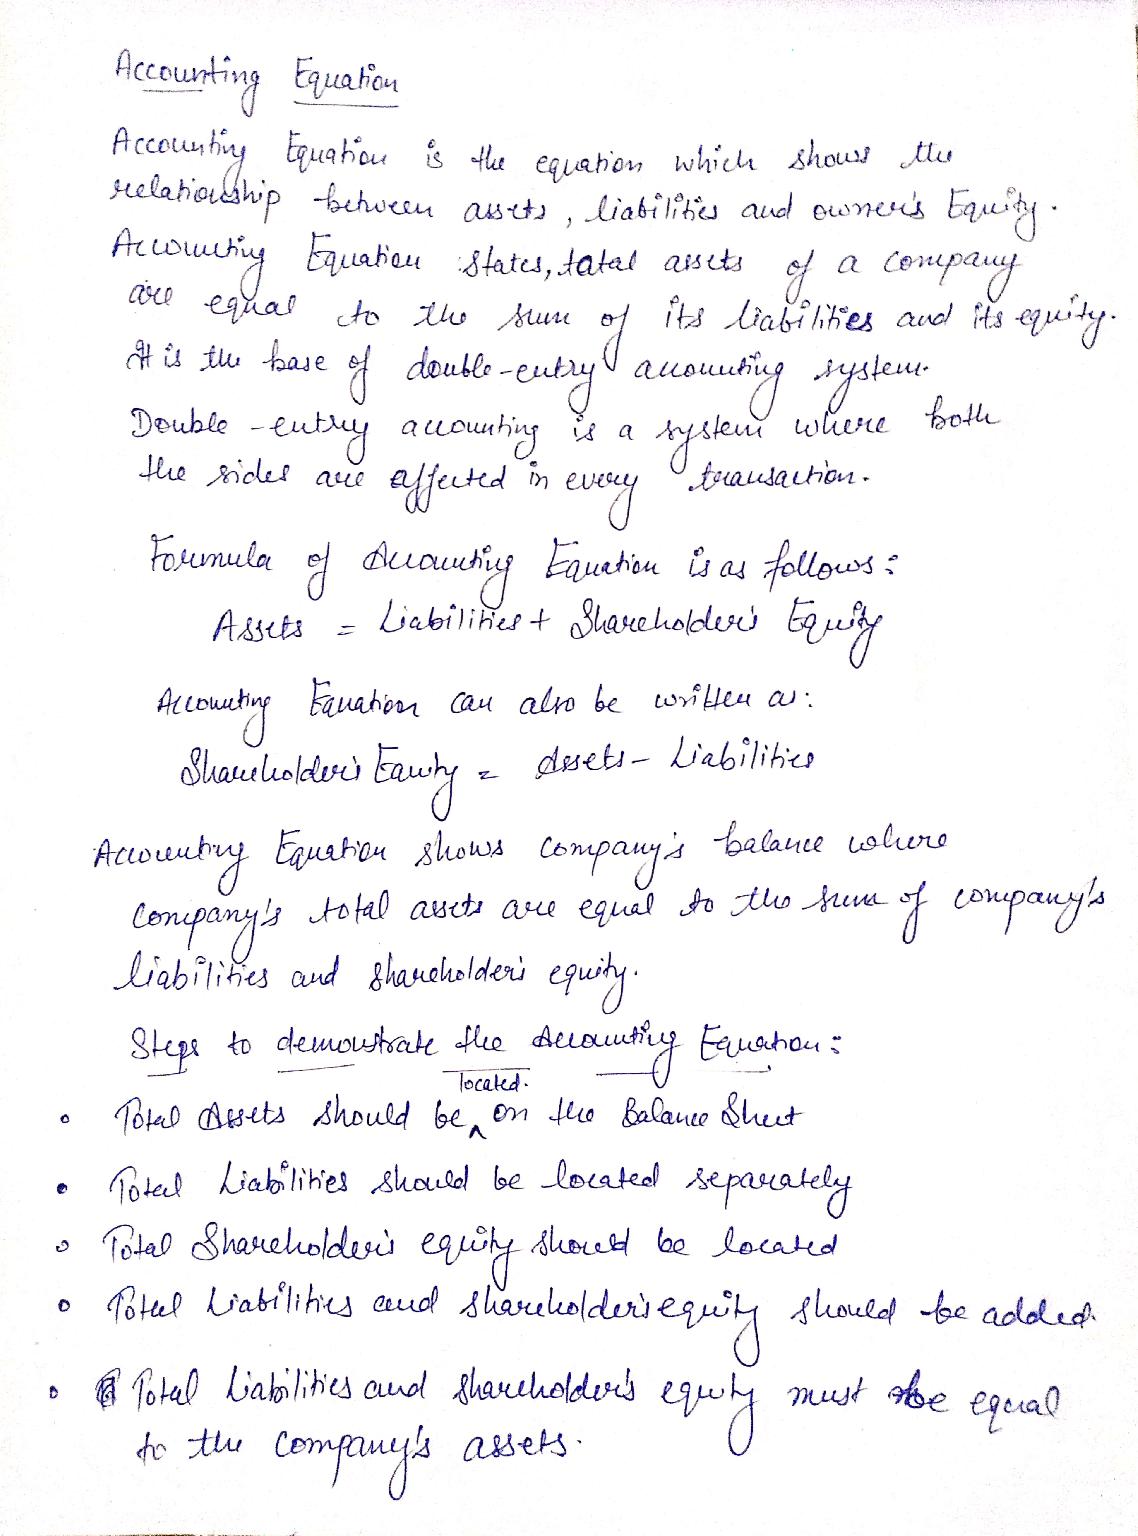 Accounting Equation
Accounting Equation is the equation which shows the
relationship between assets, liabilities and owner's Equity.
Accounting Equation states, total assets of a company
are equal to the sum of its liabilities and its equity.
It is the base of double-entry accounting system.
Double-entry accounting is a system where both
the sides are affected in every transaction.
Formula of Accounting Equation is as follows:
Assets = Liabilities + Shareholder's Equity
Accounting Equation can also be written as:
Shareholder's Equity = Assets - Liabilities
Accounting Equation shows company's balance where
company's total assets are equal to the sum of company's
liabilities and shareholder's equity.
Steps to demonstrate the Accounting Equation:
• Total Assets should be located on the Balance Sheet
• Total Liabilities should be located separately
• Total Shareholder's equity should be located
• Total Liabilities and shareholder's equity should be added.
• Total Liabilities and shareholder's equity must be equal
to the company's assets.